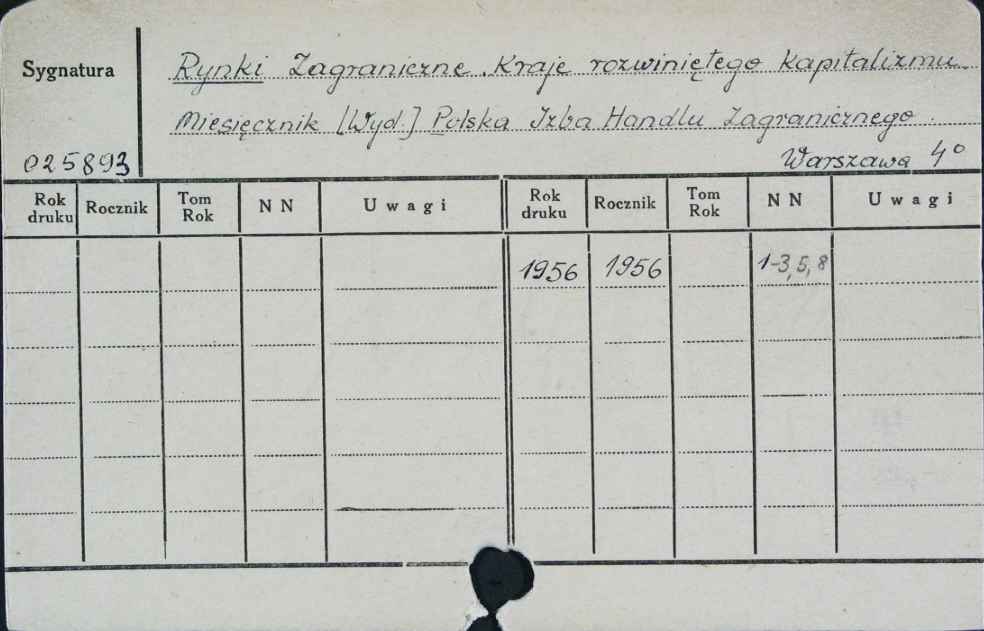 Sygnatura
Rynki Zagraniczne. Kraje rozwiniętego kapitalizmu.
Miesięcznik [Wyd.] Polska Izba Handlu Zagranicznego.
025893
Warszawa 4°
Rok druku Rocznik Tom Rok NN Uwagi Rok druku Rocznik Tom Rok NN Uwagi
1956 1956 1-3, 5, 8